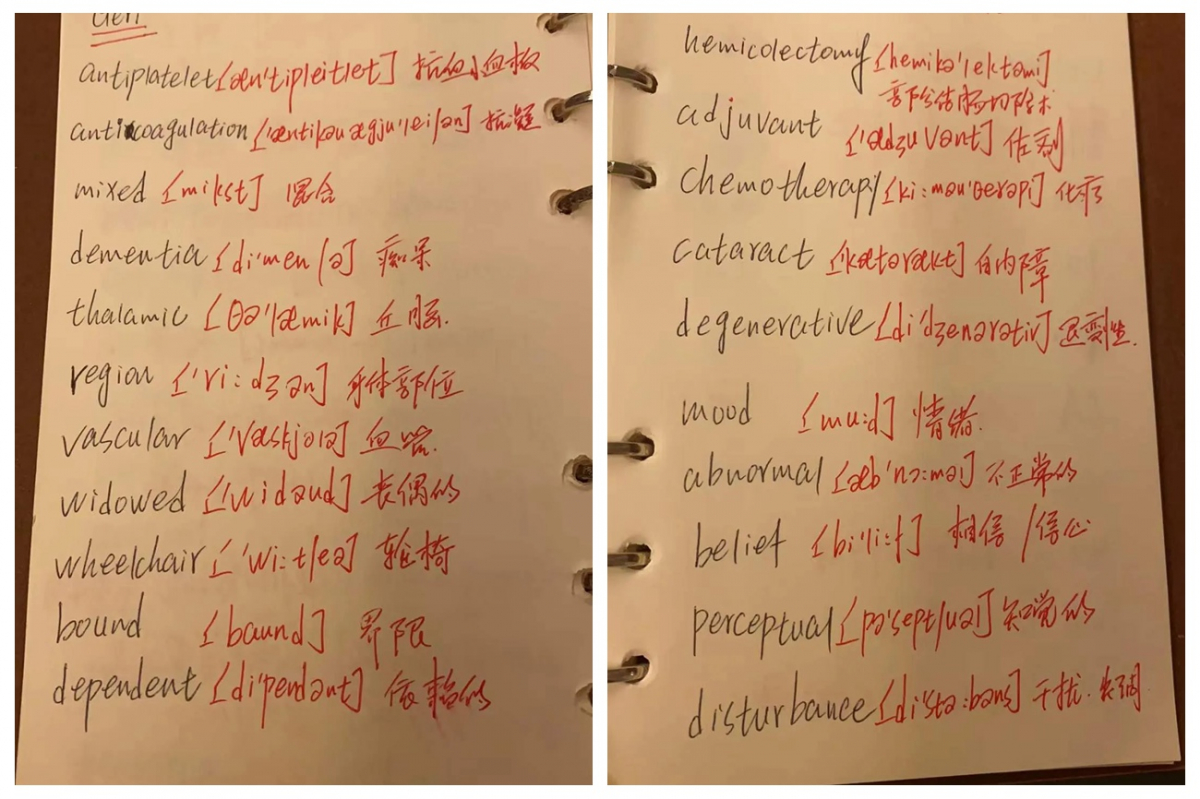 antiplatelet [æn'tipleitlet] 抗血小血板
anticoagulation ['æntikəuægju'leiʃən] 抗凝
mixed [mikst] 混合
dementia [di'menʃə] 痴呆
thalamic [θə'læmik] 丘脑.
region ['ri:dʒən] 身体部位
vascular ['væskjələ] 血管.
widowed ['widəud] 丧偶的
wheelchair ['wi:tʃeə] 轮椅
bound [baund] 界限
dependent [di'pendənt] 依赖的
hemicolectomy [hemikə'lektəmi]
部分结肠切除术
adjuvant ['ædʒuvənt] 佐剂
chemotherapy [ki:məu'θerəpi] 化疗
cataract ['kætərækt] 白内障
degenerative [di'dʒenərətiv] 退变性.
mood [mu:d] 情绪.
abnormal [æb'nɔ:məl] 不正常的
belief [bi'li:f] 相信/信心
perceptual [pə'septʃuəl] 知觉的
disturbance [di'stə:bəns] 干扰.失调